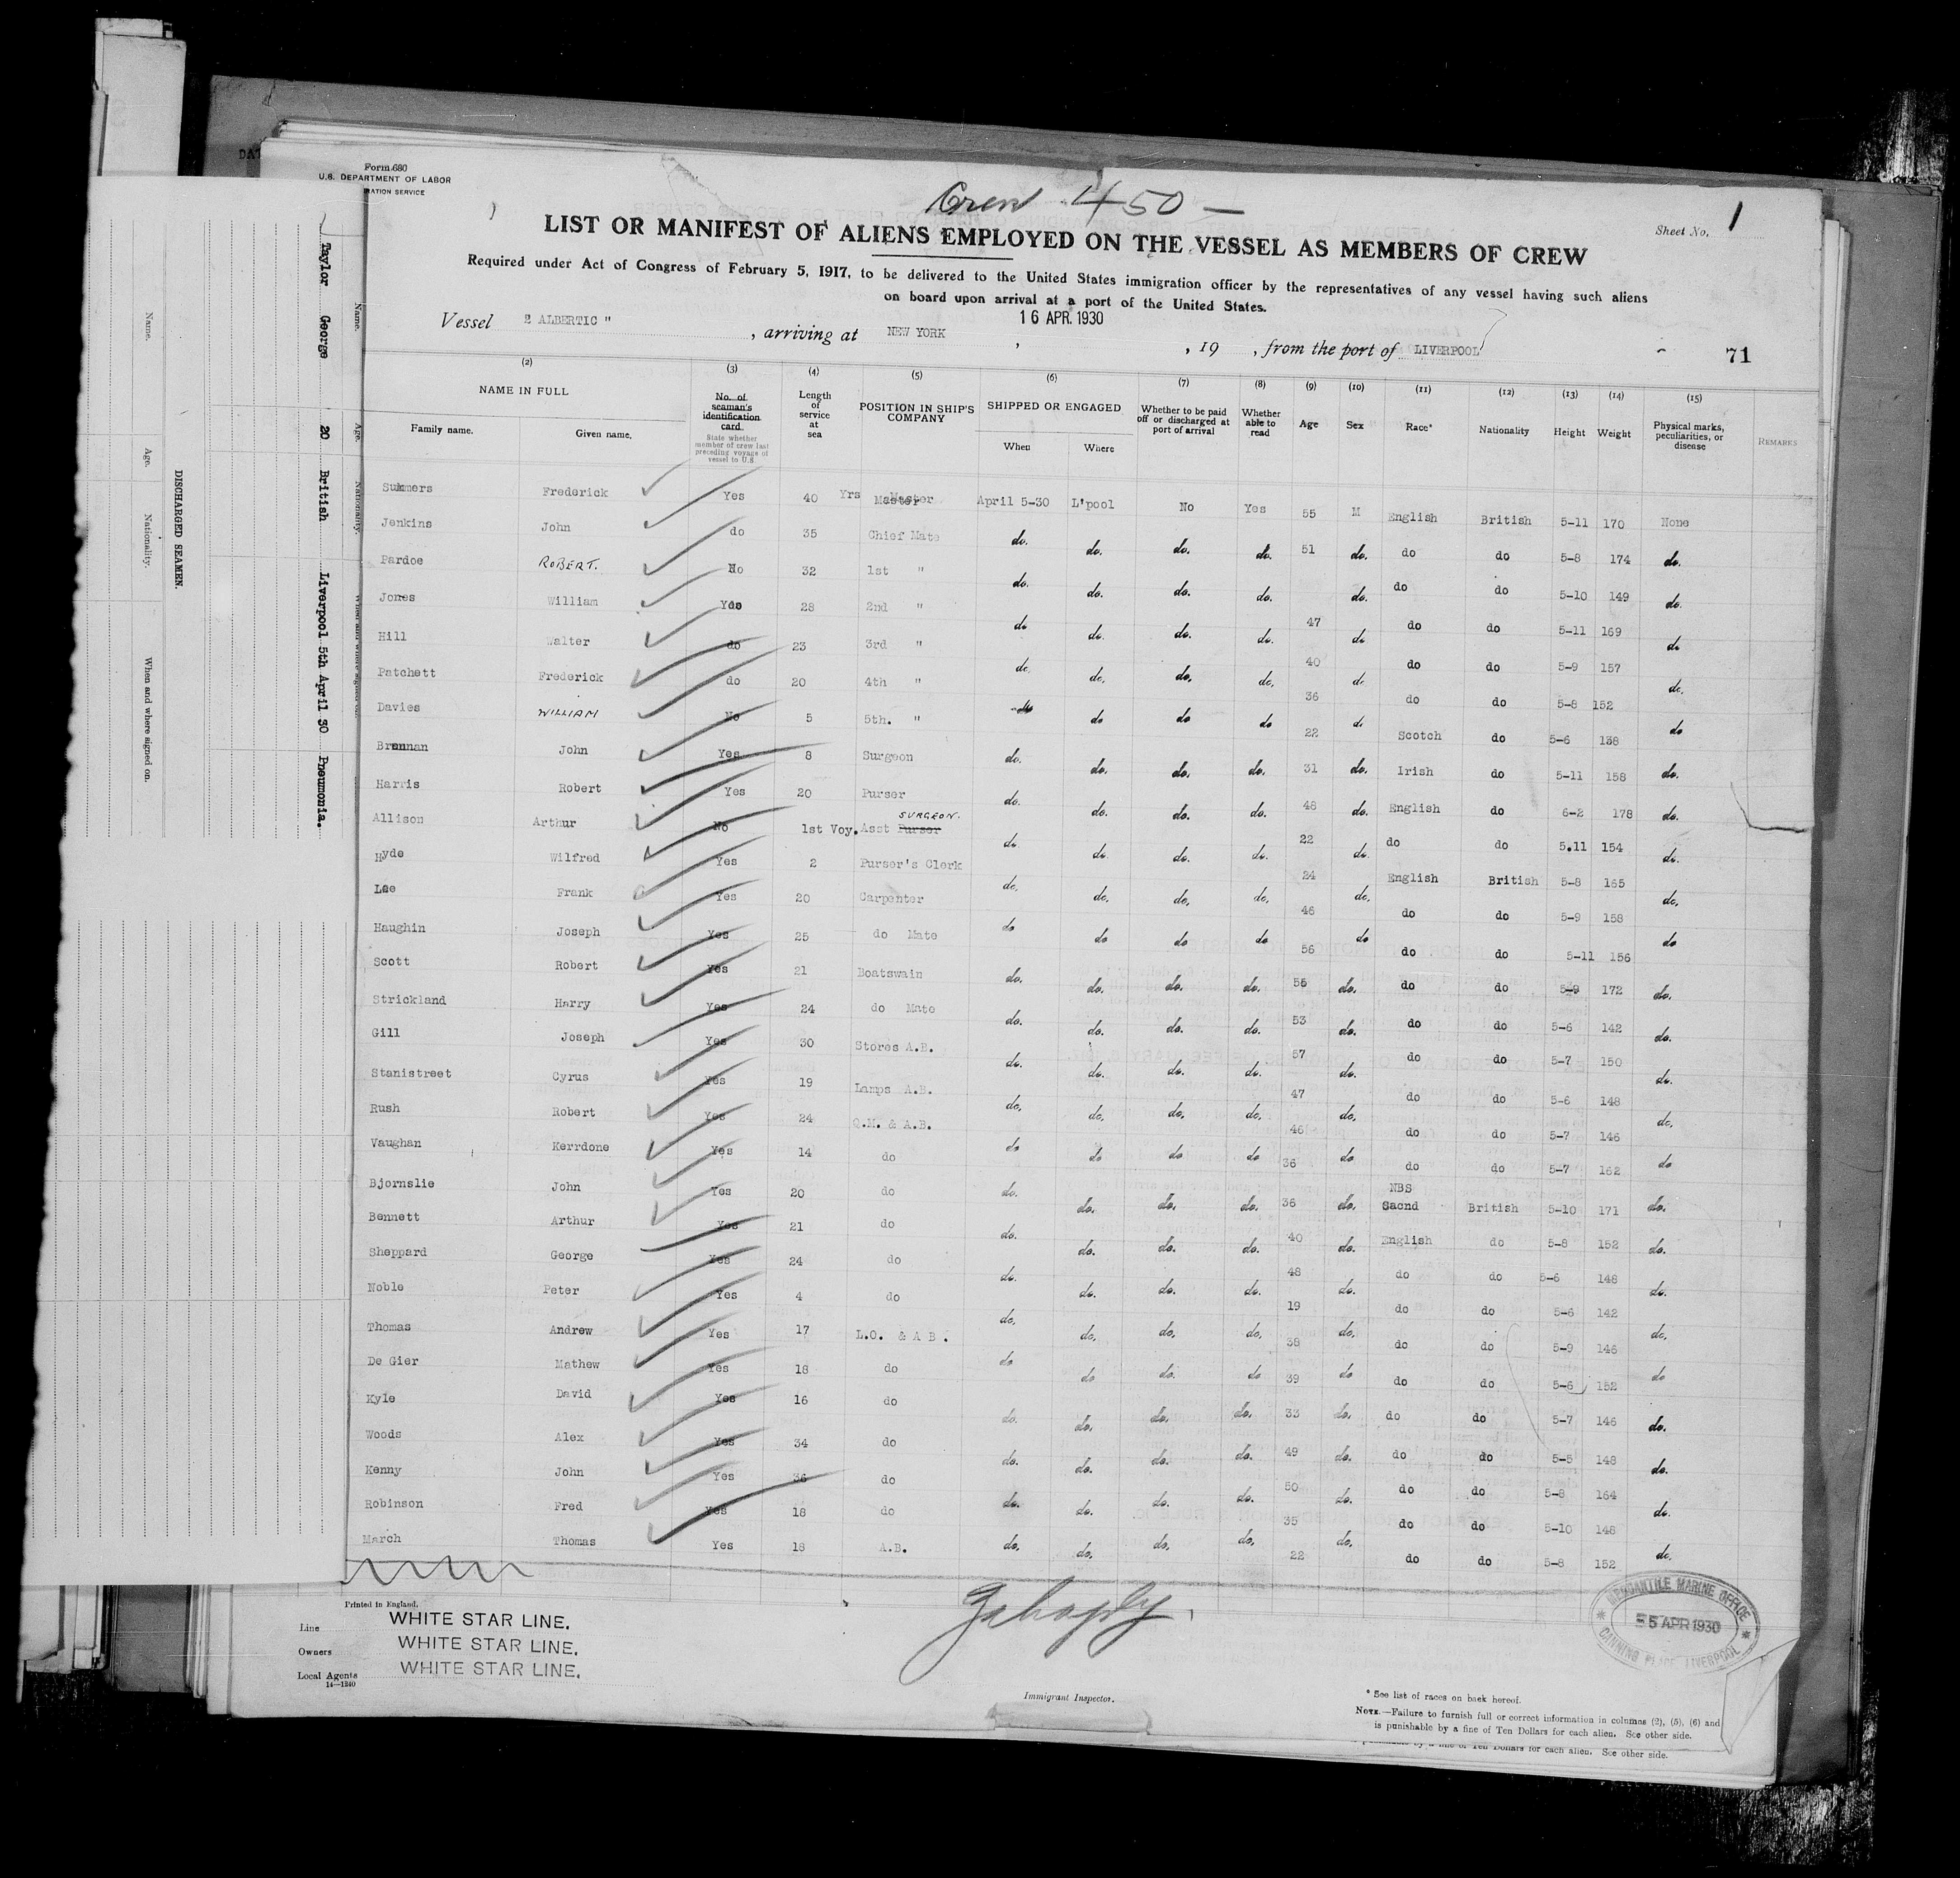 Form 680
U.S. DEPARTMENT OF LABOR
RATION SERVICE
Crew 450 —
Sheet No. 1
LIST OR MANIFEST OF ALIENS EMPLOYED ON THE VESSEL AS MEMBERS OF CREW
Required under Act of Congress of February 5, 1917, to be delivered to the United States immigration officer by the representatives of any vessel having such aliens
on board upon arrival at a port of the United States.
Vessel " ALBERTIC ", arriving at NEW YORK, 16 APR. 1930, 19 , from the port of LIVERPOOL 71
(2) (3) (4) (5) (6) (7) (8) (9) (10) (11) (12) (13) (14) (15)
NAME IN FULL Family name. Given name. No. of seaman's identification card. State whether member of crew last preceding voyage of vessel to U.S. Length of service at sea POSITION IN SHIP'S COMPANY SHIPPED OR ENGAGED When Where Whether to be paid off or discharged at port of arrival Whether able to read Age Sex Race* Nationality Height Weight Physical marks, peculiarities, or disease REMARKS
Summers Frederick Yes 40 Yrs Master April 5-30 L'pool No Yes 55 M English British 5-11 170 None
Jenkins John do 35 Chief Mate do. do. do. do. 51 do. do do 5-8 174 do.
Pardoe ROBERT. No 32 1st " do. do. do. do. do. do do 5-10 149 do.
Jones William Yes 28 2nd " do do. do. do. 47 do do do 5-11 169 do
Hill Walter do 23 3rd " do. do. do. do. 40 do. do do 5-9 157 do.
Patchett Frederick do 20 4th " do do do do 36 do do do 5-8 152 do
Davies WILLIAM No 5 5th. " do. do. do. do. 22 do. Scotch do 5-6 138 do.
Brennan John Yes 8 Surgeon do. do. do. do. 31 do. Irish do 5-11 158 do.
Harris Robert Yes 20 Purser do. do. do. do. 48 do. English do 6-2 178 do.
Allison Arthur No 1st Voy. Asst Purser SURGEON. do. do. do. do. 22 do. do do 5.11 154 do.
Hyde Wilfred Yes 2 Purser's Clerk do. do. do. do. 24 do. English British 5-8 165 do.
Lee Frank Yes 20 Carpenter do do do do 46 do do do 5-9 158 do
Haughin Joseph Yes 25 do Mate 56 do do 5-11 156
Scott Robert Yes 21 Boatswain do. do. do. do. 55 do. do do 5-9 172 do.
Strickland Harry Yes 24 do Mate do. do. do. do. 53 do. do do 5-6 142 do.
Gill Joseph Yes 30 Stores A.B. do. do. do. do. 57 do. do do 5-7 150 do.
Stanistreet Cyrus Yes 19 Lamps A.B. do. do. do. do. 47 do. do do 5-6 148 do.
Rush Robert Yes 24 Q.M. & A.B. do do do do 46 do do do 5-7 146 do
Vaughan Kerrdone Yes 14 do 36 do do 5-7 162
Bjornslie John Yes 20 do do. do. do. do. 36 do. NBS Sacnd British 5-10 171 do.
Bennett Arthur Yes 21 do do. do. do. do. 40 do. English do 5-8 152 do.
Sheppard George Yes 24 do do. do. do. do. 48 do. do do 5-6 148 do.
Noble Peter Yes 4 do do. do. do. do. 19 do. do do 5-6 142 do.
Thomas Andrew Yes 17 L.O. & A B . do do do. do 38 do do do 5-9 146 do
De Gier Mathew Yes 18 do 39 do do 5-6 152
Kyle David Yes 16 do do. do. do. do. 33 do. do do 5-7 146 do.
Woods Alex Yes 34 do do. do. do. do. 49 do. do do 5-5 148 do.
Kenny John Yes 36 do do. do. do. do. 50 do. do do 5-8 164 do.
Robinson Fred Yes 18 do do. do. do. do. 35 do. do do 5-10 148 do.
March Thomas Yes 18 A.B. 22 do do 5-8 152
Printed in England.
Line WHITE STAR LINE.
Owners WHITE STAR LINE.
Local Agents WHITE STAR LINE.
14—1240
Immigrant Inspector.
MERCANTILE MARINE OFFICE
5 APR 1930
CANNING PLACE LIVERPOOL
* See list of races on back hereof.
NOTE.—Failure to furnish full or correct information in columns (2), (5), (6) and
is punishable by a fine of Ten Dollars for each alien. See other side.
is punishable by a fine of Ten Dollars for each alien. See other side.
DISCHARGED SEAMEN.
Name. Age. Nationality. When and where signed on.
Name. Age. Nationality. When and where signed on.
Taylor George 20 British Liverpool 5th April 30 Pneumonia.